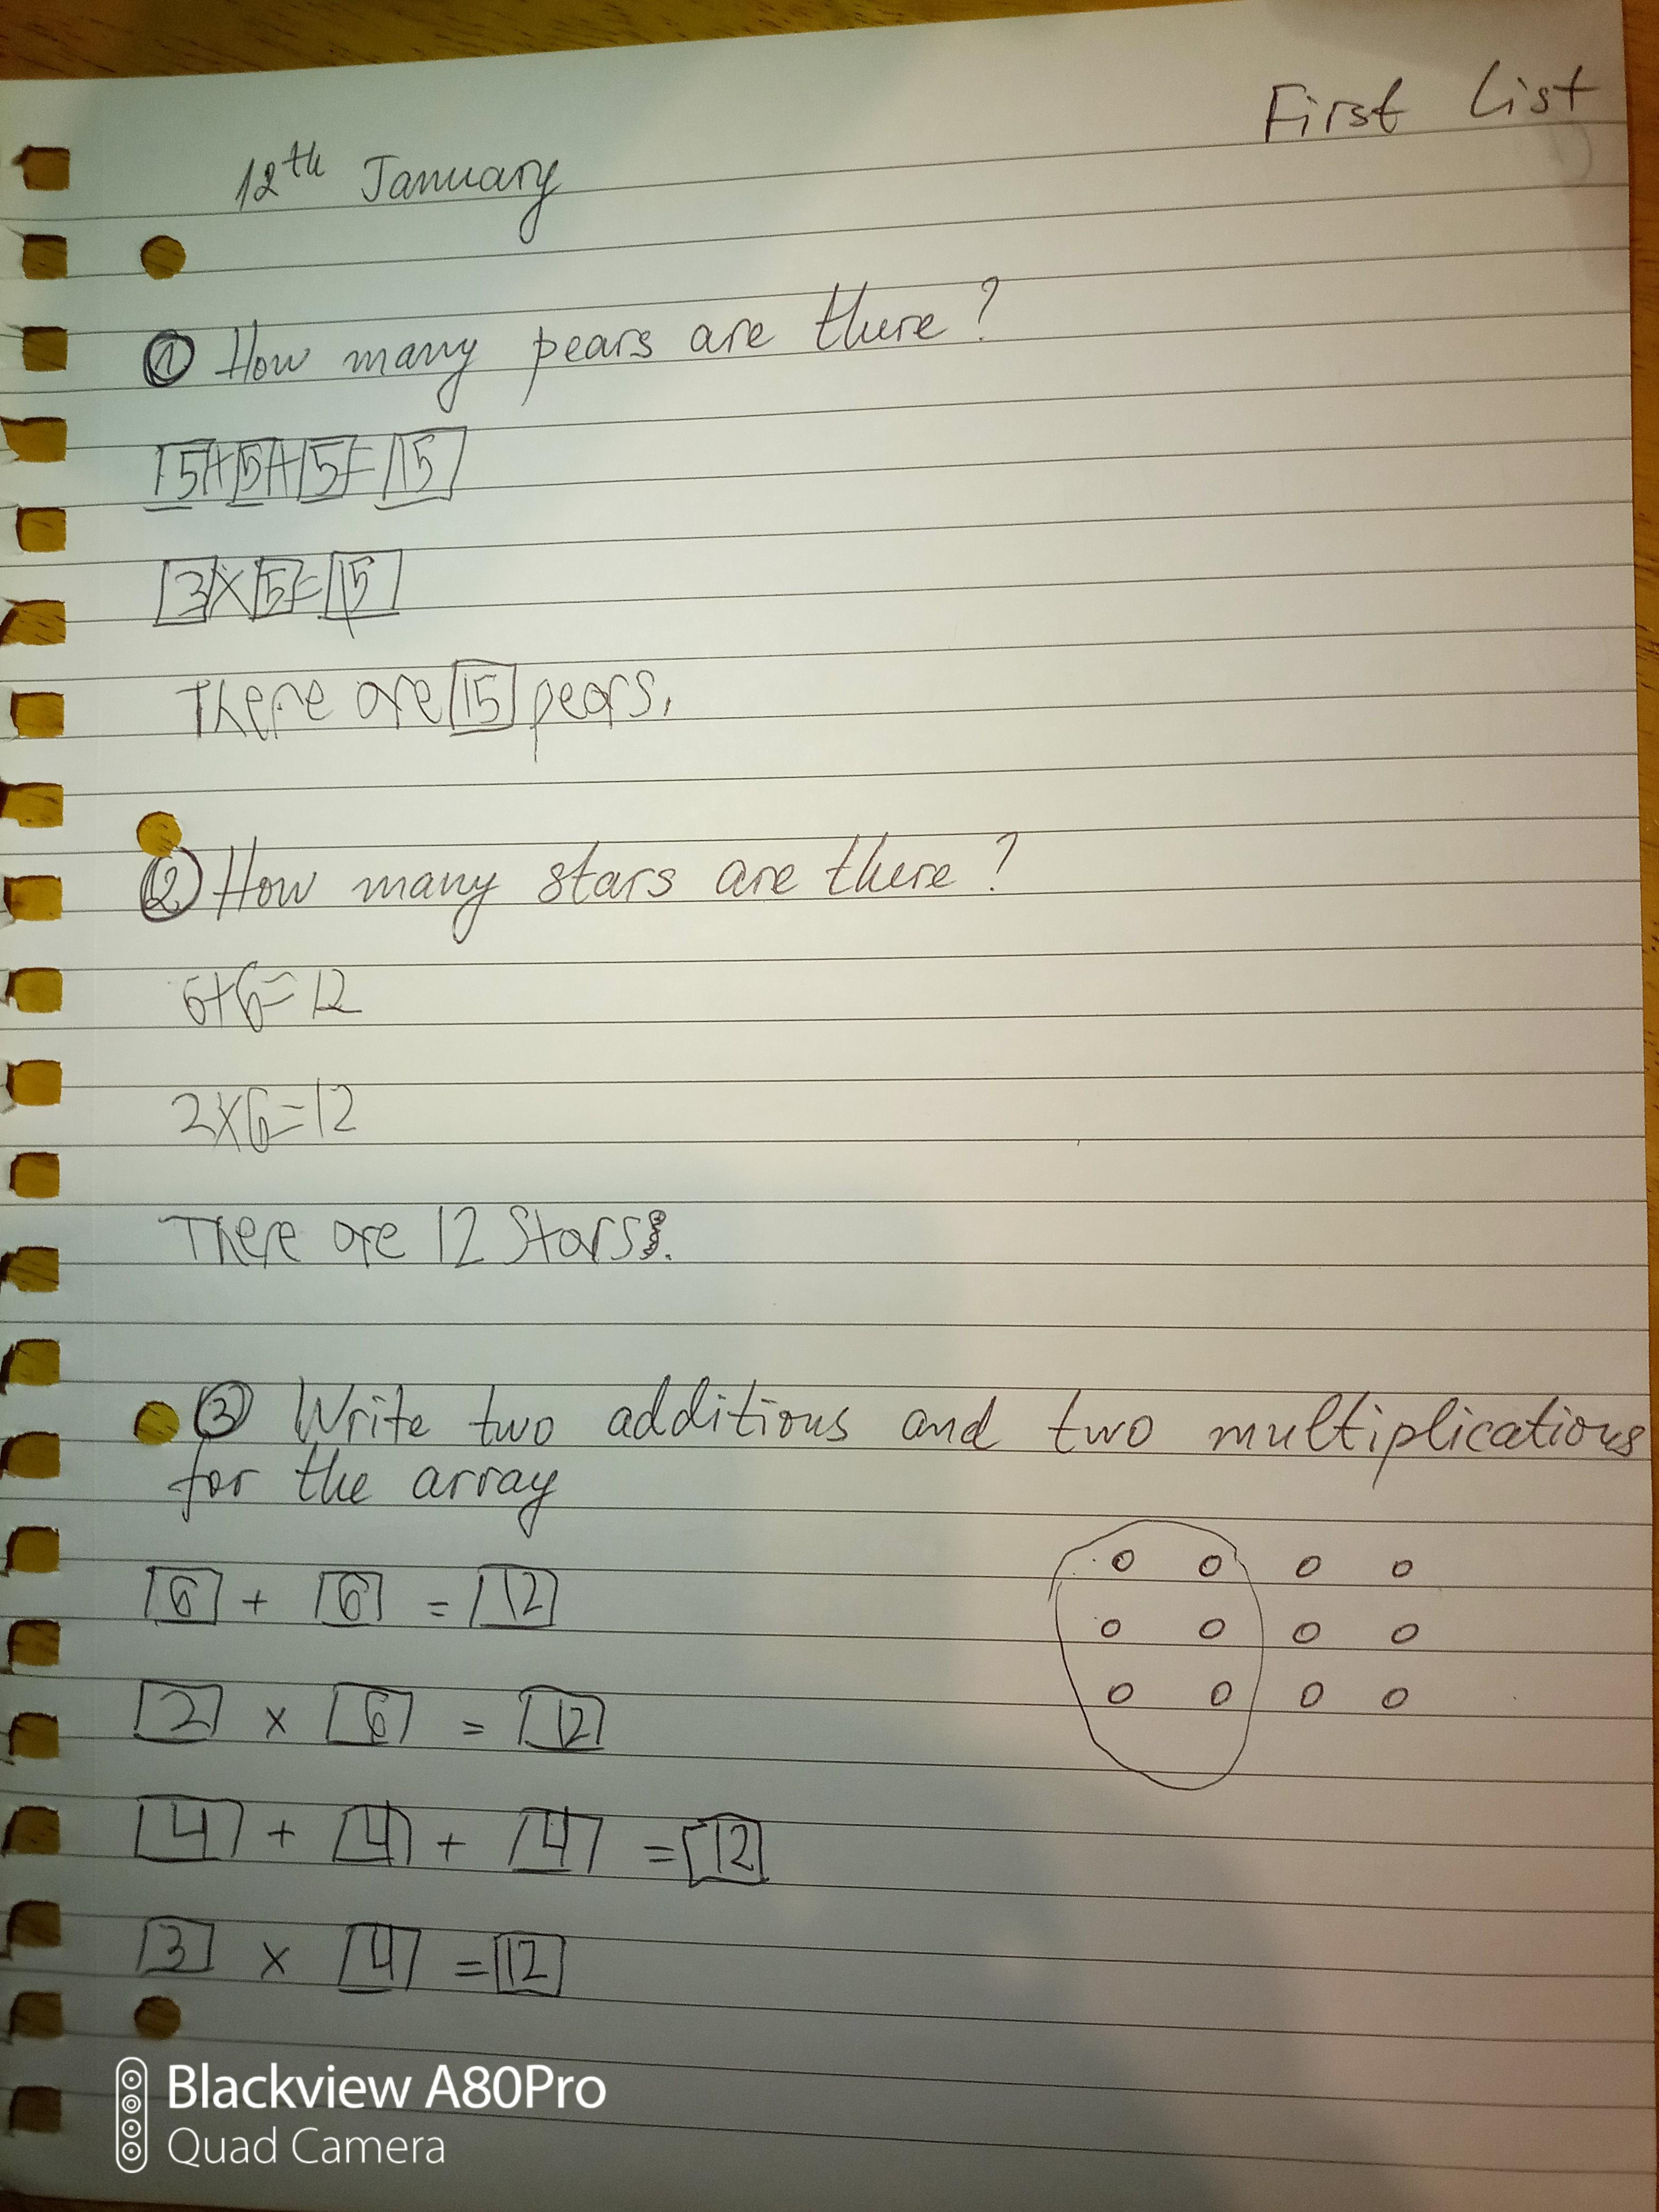 First List
12th January
① How many pears are there?
5+5+5=15
3×5=15
There are 15 pears.
② How many stars are there?
6+6=12
2×6=12
There are 12 stars.
③ Write two additions and two multiplications
for the array
6 + 6 = 12
2 × 6 = 12
4 + 4 + 4 = 12
3 × 4 = 12
Blackview A80Pro
Quad Camera